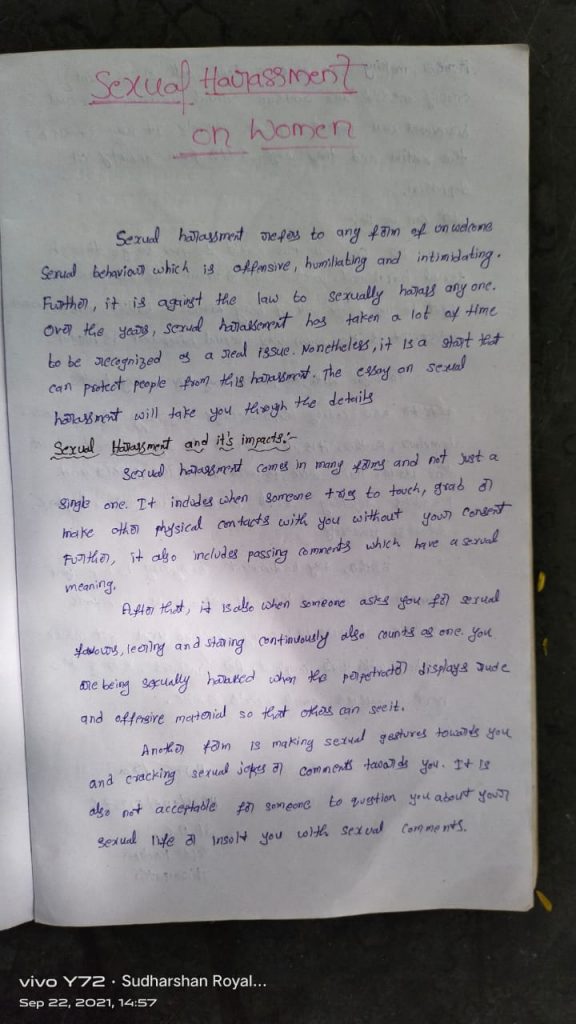 Sexual Harassment
on Women
Sexual harassment refers to any form of unwelcome
Sexual behaviour which is offensive, humiliating and intimidating.
Further, it is against the law to sexually harass any one.
Over the years, sexual harassement has taken a lot of time
to be recognized as a real issue. Nonetheless, it is a start that
can protect people from this harassment. The essay on sexual
harassment will take you through the details
Sexual Harassment and it's impacts:-
Sexual harassment comes in many forms and not just a
single one. It includes when someone tries to touch, grab or
make other physical contacts with you without your consent
Further, it also includes passing comments which have a sexual
meaning.
After that, it is also when someone asks you for sexual
favours, leering and staring continuously also counts as one. you
are being sexually when the perpetrator displays rude
and offensive material so that others can see it.
Another form is making sexual gestures towards you
and cracking sexual jokes or comments towards you. It is
also not acceptable for someone to question you about your
sexual life or insolt you with sexual comments.
vivo Y72 · Sudharshan Royal...
Sep 22, 2021, 14:57